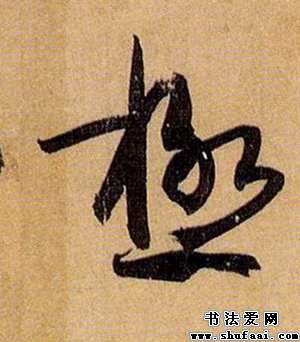 極
书法爱网
www.shufaai.com